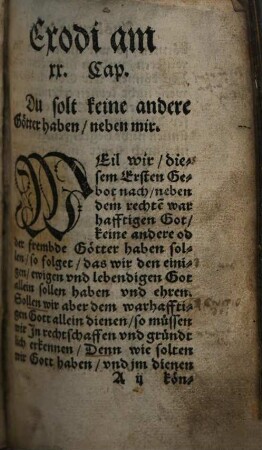 Exodi am
xx. Cap.
Du solt keine andere
Götter haben / neben mir.
WEil wir / die-
sem Ersten Ge-
bot nach / neben
dem rechtē war
hafftigen Got /
keine andere od
der frembde Götter haben sol-
len / so folget / das wir den eini-
gen / ewigen vnd lebendigen Got
allein sollen haben vnd ehren.
Sollen wir aber dem warhaffti-
gen Gott allein dienen / so müssen
wir In rechtschaffen vnd gründt
lich erkennen / Denn wie solten
wir Gott haben / vnd jm dienen
A ij kön-